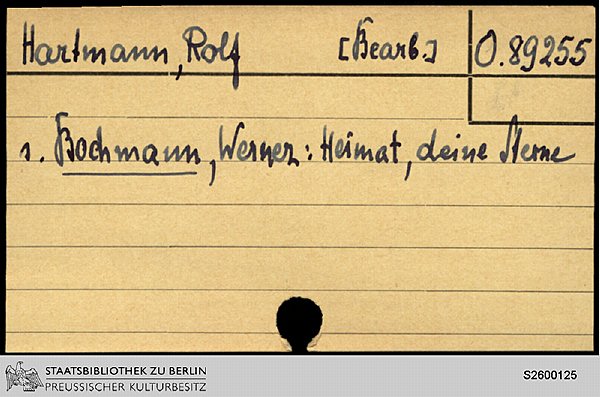 Hartmann, Rolf [Bearb.] O. 89255
s. Bochmann, Werner: Heimat, deine Sterne
STAATSBIBLIOTHEK ZU BERLIN
PREUSSISCHER KULTURBESITZ
S2600125